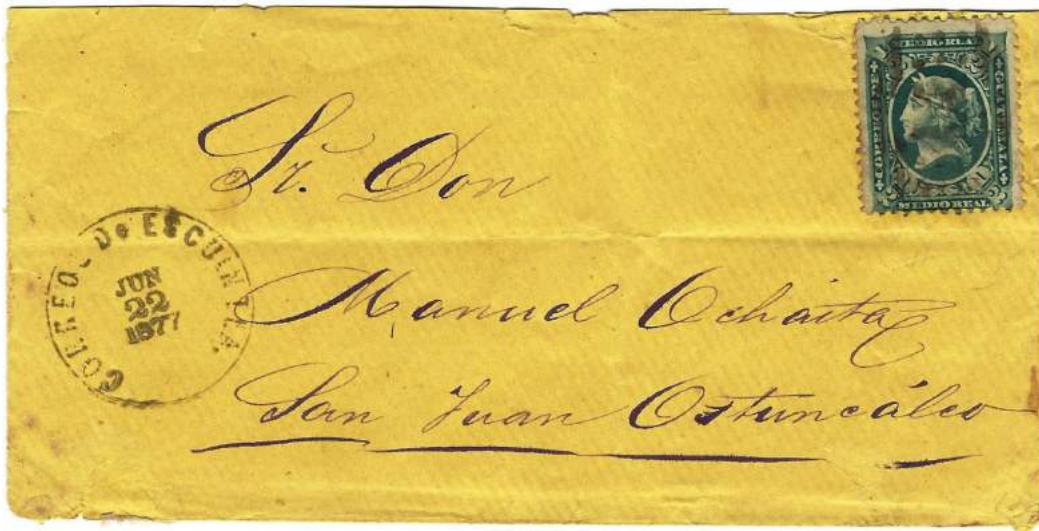 MEDIO REAL
CORREOS DE
GUATEMALA
MEDIO REAL
Sr. Don
CORREOS De ESCUINTLA.
JUN
22
1877
Manuel Ochaita
San Juan Ostuncálco